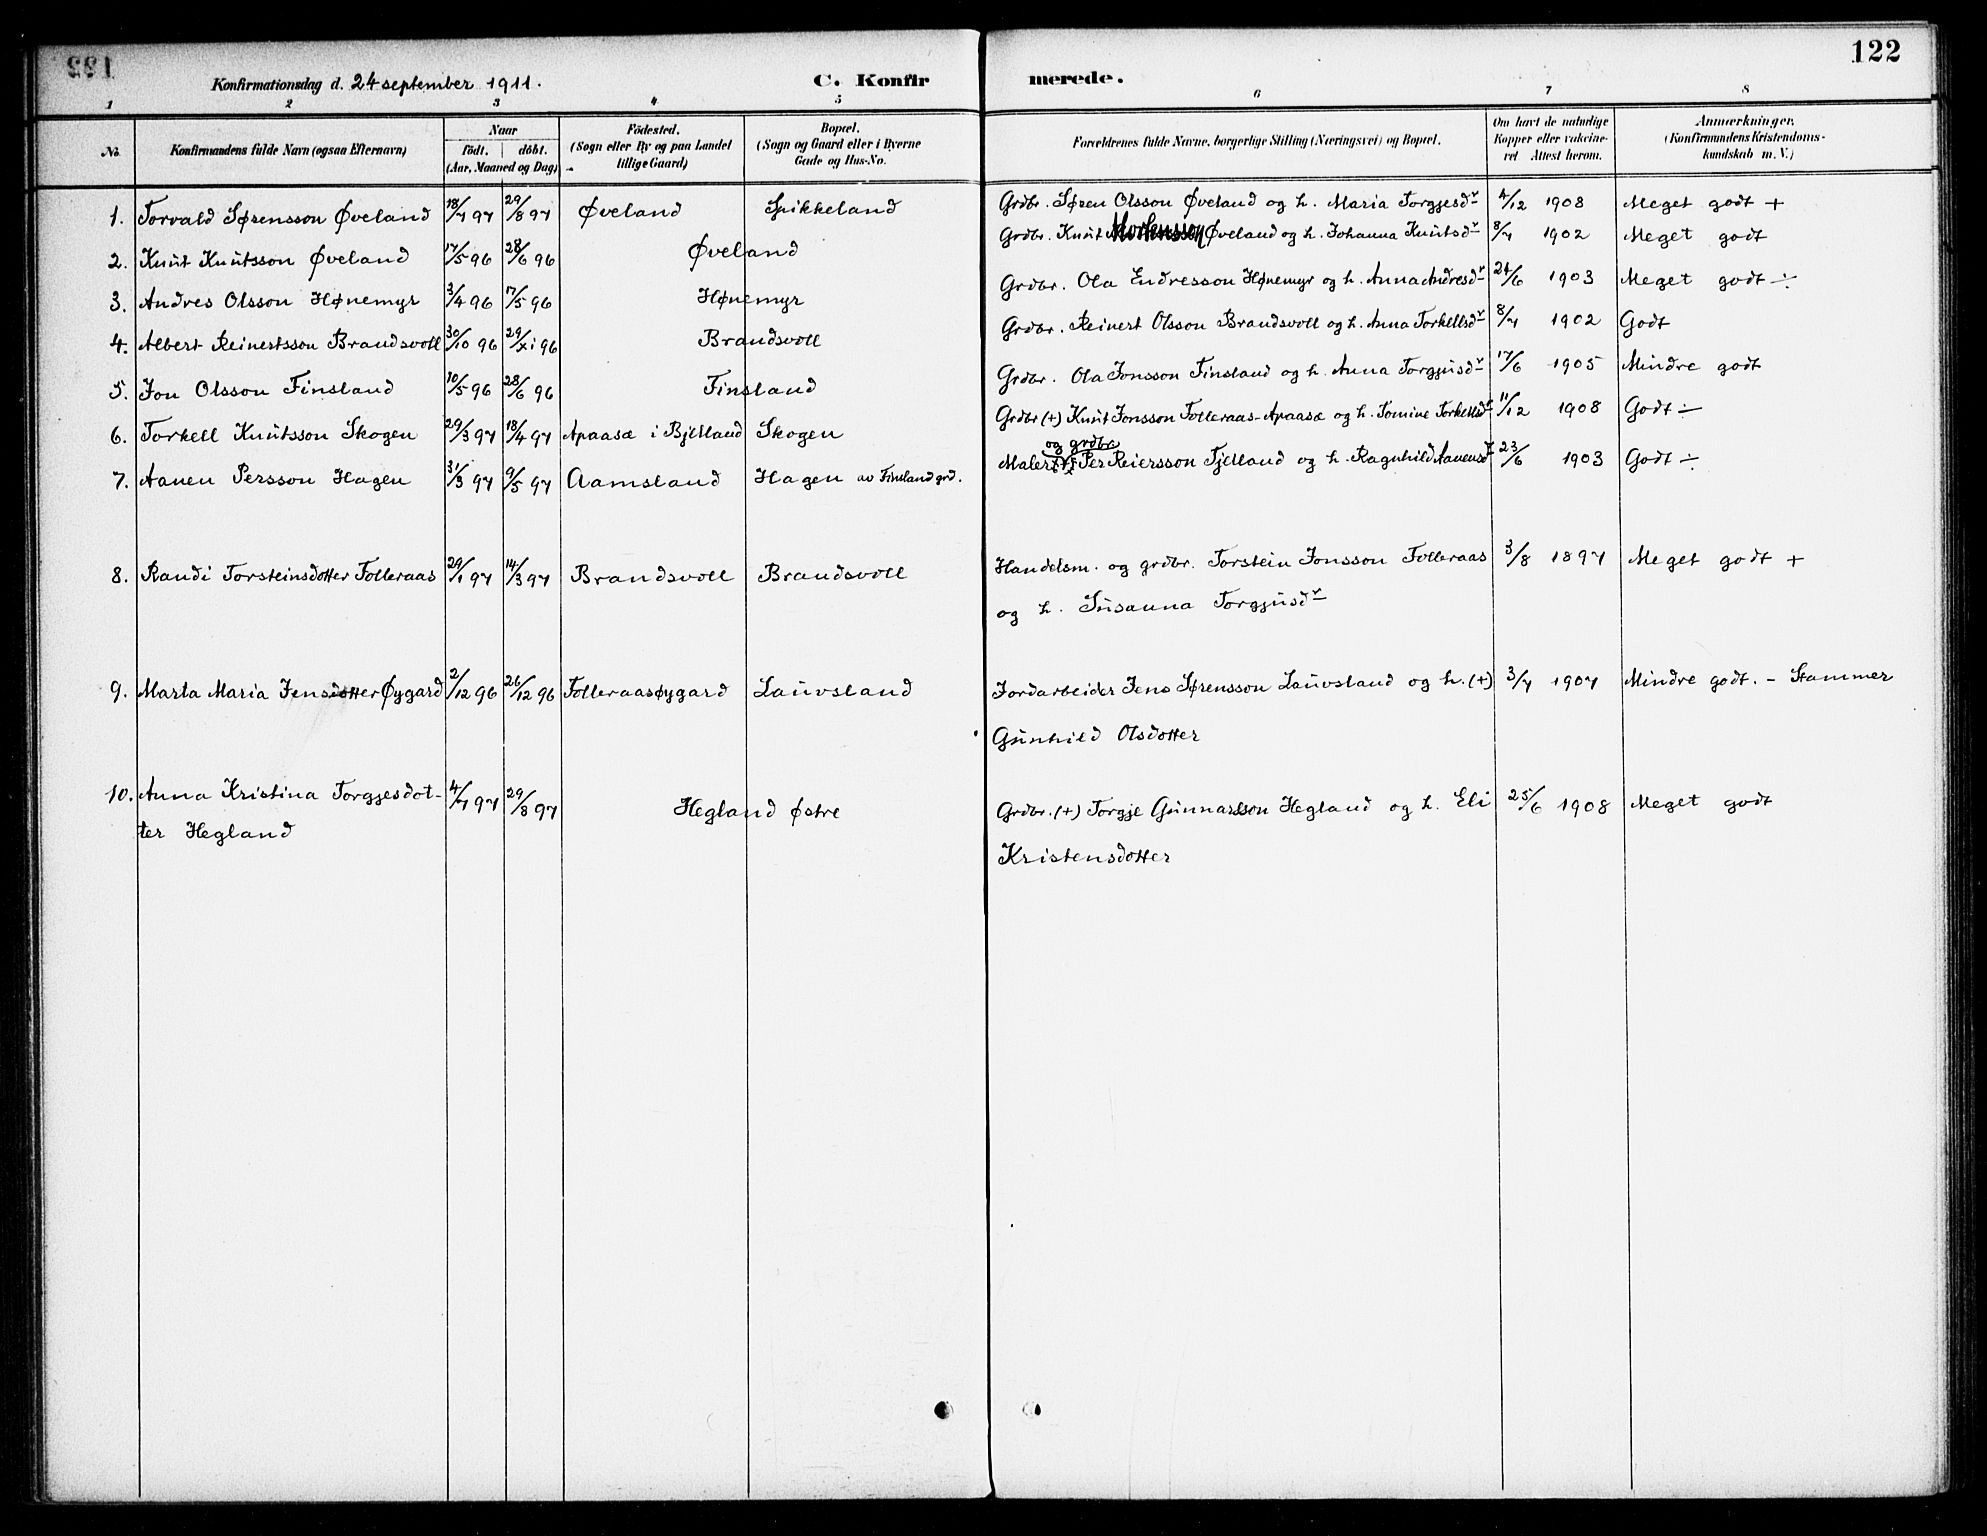 122
Konfirmationsdag d. 24 september 1911.
C. Konfirmerede.
1 2 3 4 5 6 7 8
No. Konfirmandens fulde Navn (ogsaa Efternavn) Naar födt. döbt. (Aar, Maaned og Dag) Födested. (Sogn eller By og paa Landet tillige Gaard) Bopæl. (Sogn og Gaard eller i Byerne Gade og Hus-No. Forældrenes fulde Navne, borgerlige Stilling (Næringsvei) og Bopæl. Om havt de naturlige Kopper eller vakcineret Attest herom. Anmærkninger. (Konfirmandens Kristendomskundskab m. V.)
1. Torvald Sørensson Øveland 18/7 97 29/8 97 Øveland Spikkeland Grdbr. Søren Olsson Øveland og h. Maria Torgjesdr 4/12 1908 Meget godt +
2. Knut Knutsson Øveland 17/5 96 28/6 96 Øveland Grdbr. Knut Mortensson Øveland og h. Johanna Knutsdr 8/7 1902 Meget godt
3. Andres Olsson Hønemyr 3/4 96 17/5 96 Hønemyr Grdbr. Ola Endresson Hønemyr og h. Anna Andresdr 24/6 1903 Meget godt ÷
4. Albert Reinertsson Brandsvoll 30/10 96 29/xi 96 Brandsvoll Grdbr. Reinert Olsson Brandsvoll og h. Anna Torkellsdr 8/7 1902 Godt
5. Jon Olsson Finsland 10/5 96 28/6 96 Finsland Grdbr. Ola Jonsson Finsland og h. Anna Torgjusdr 17/6 1905 Mindre godt
6. Torkell Knutsson Skogen 29/3 97 18/4 97 Apaasæ i Bjelland Skogen Grdbr (+) Knut Jonsson Tolleraas-Apaasæ og h. Tomine Torkellsdr 11/12 1908 Godt ÷
og grdbr.
7. Aanen Persson Hagen 31/3 97 9/5 97 Aamsland Hagen av Finsland grd. Maler Per Reiersson Fjelland og h. Ragnhild Aanensdr 23/6 1903 Godt ÷
8. Randi Torsteinsdotter Tolleraas 29/1 97 14/3 97 Brandsvoll Brandsvoll Handelsm. og grdbr. Torstein Jonsson Tolleraas 3/8 1897 Meget godt +
og h. Susanna Torgjusdr
9. Marta Maria Jensdotter Øygard 2/12 96 26/12 96 Tolleraasøygard Lauvsland Jordarbeider Jens Sørensson Lauvsland og h. (+) 3/7 1907 Mindre godt. - Stammer
Gunhild Olsdotter
10. Anna Kristina Torgjesdot- 4/7 97 29/8 97 Hegland østre Grdbr. (+) Torgje Gunnarsson Hegland og h. Eli 25/6 1908 Meget godt
ter Hegland Kristensdotter